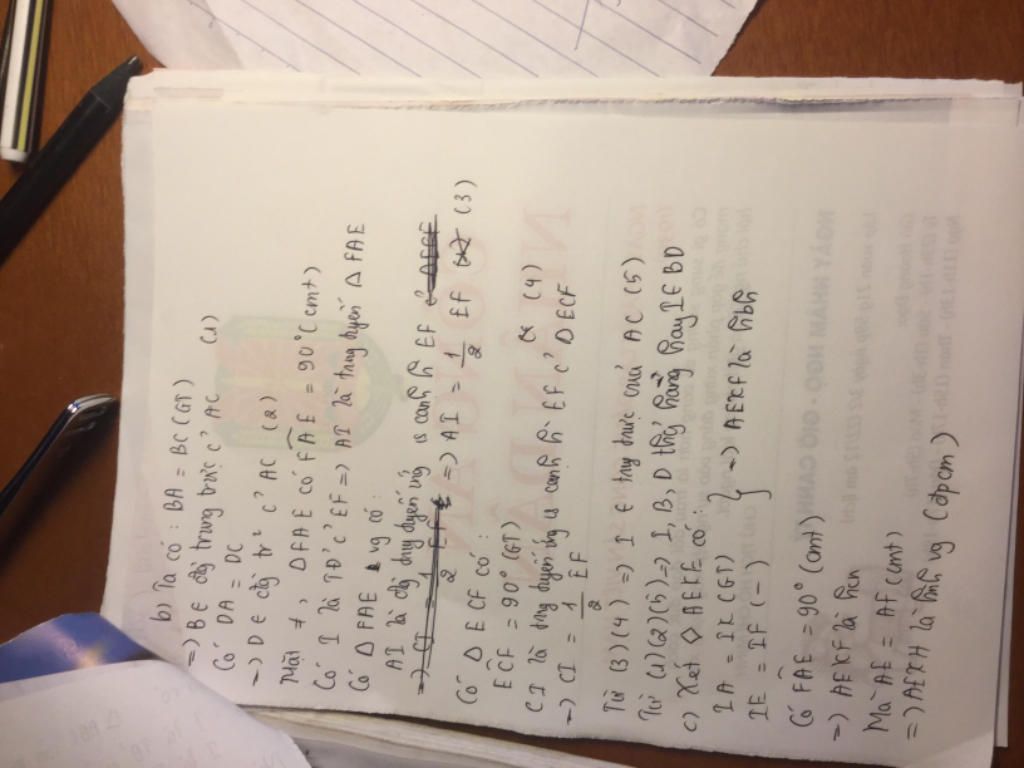 b) Ta có : BA = BC (GT)
=) B ∈ đg trung trực c' AC (1)
Có DA = DC
=) D ∈ đg tr² c' AC (2)
Mặt ≠, ΔFAE có FAE = 90° (cmt)
Có I là TĐ' c' EF =) AI là trung tuyến Δ FAE
Có Δ FAE vg có :
AI là đg trug tuyến ứng vs cạnh h EF
=) AI = 1/2 EF (3)
Có Δ ECF có :
ECF = 90° (GT)
CI là trug tuyến ứng vs cạnh h EF c' Δ ECF
=) CI = 1/2 EF (4)
Từ (3) (4) =) I ∈ trug trực của AC (5)
Từ (1) (2) (5) =) I, B, D thẳng hàng hay I ∈ BD
c) Xét ◇ AEKF có :
IA = IK (GT)
IE = IF (-) } =) AEKF là hbh
Có FAE = 90° (cmt)
=) AEKF là hcn
Mà AE = AF (cmt)
=) AEKH là hình vg (đpcm)
NHÂN DÂN
CÔNG AN